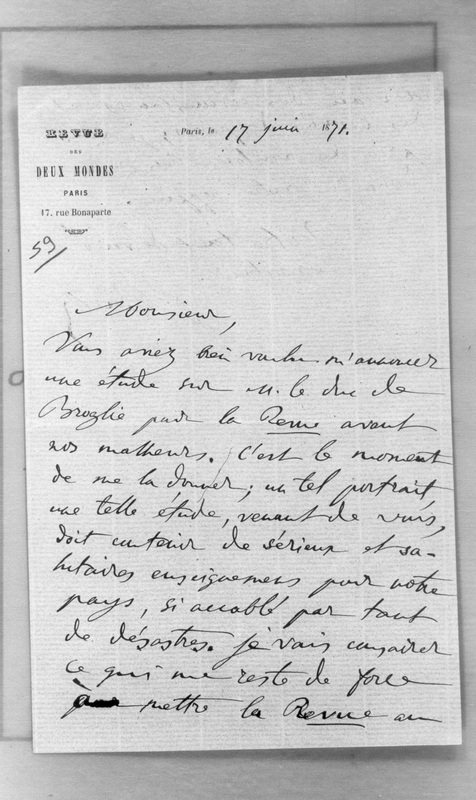 REVUE
DES
DEUX MONDES
PARIS
17. rue Bonaparte
Paris, le 17 juin 1871.
59/
Monsieur,
Vous aviez bien voulu m'annoncer
une étude sur M. le duc de
Broglie pour la Revue avant
nos malheurs. C'est le moment
de me la donner; un tel portrait,
une telle étude, venant de vous,
doit contenir de sérieux et sa-
lutaires enseignemens pour notre
pays, si accablé par tant
de désastres. Je vais consacrer
ce qui me reste de force
à mettre la Revue au